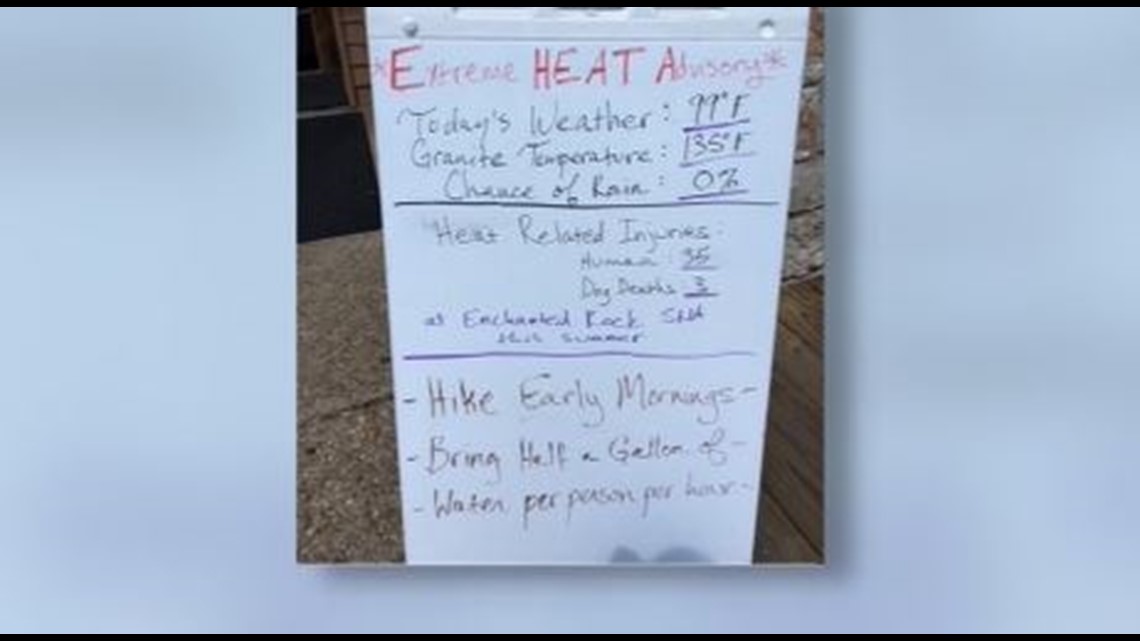 *Extreme HEAT Advisory*
Today's Weather: 99°F
Granite Temperature: 135°F
Chance of Rain: 0%
Heat Related Injuries:
Human: 35
Dog Deaths 3
at Enchanted Rock
this summer
- Hike Early Mornings -
- Bring Half a Gallon of -
- Water per person per hour -